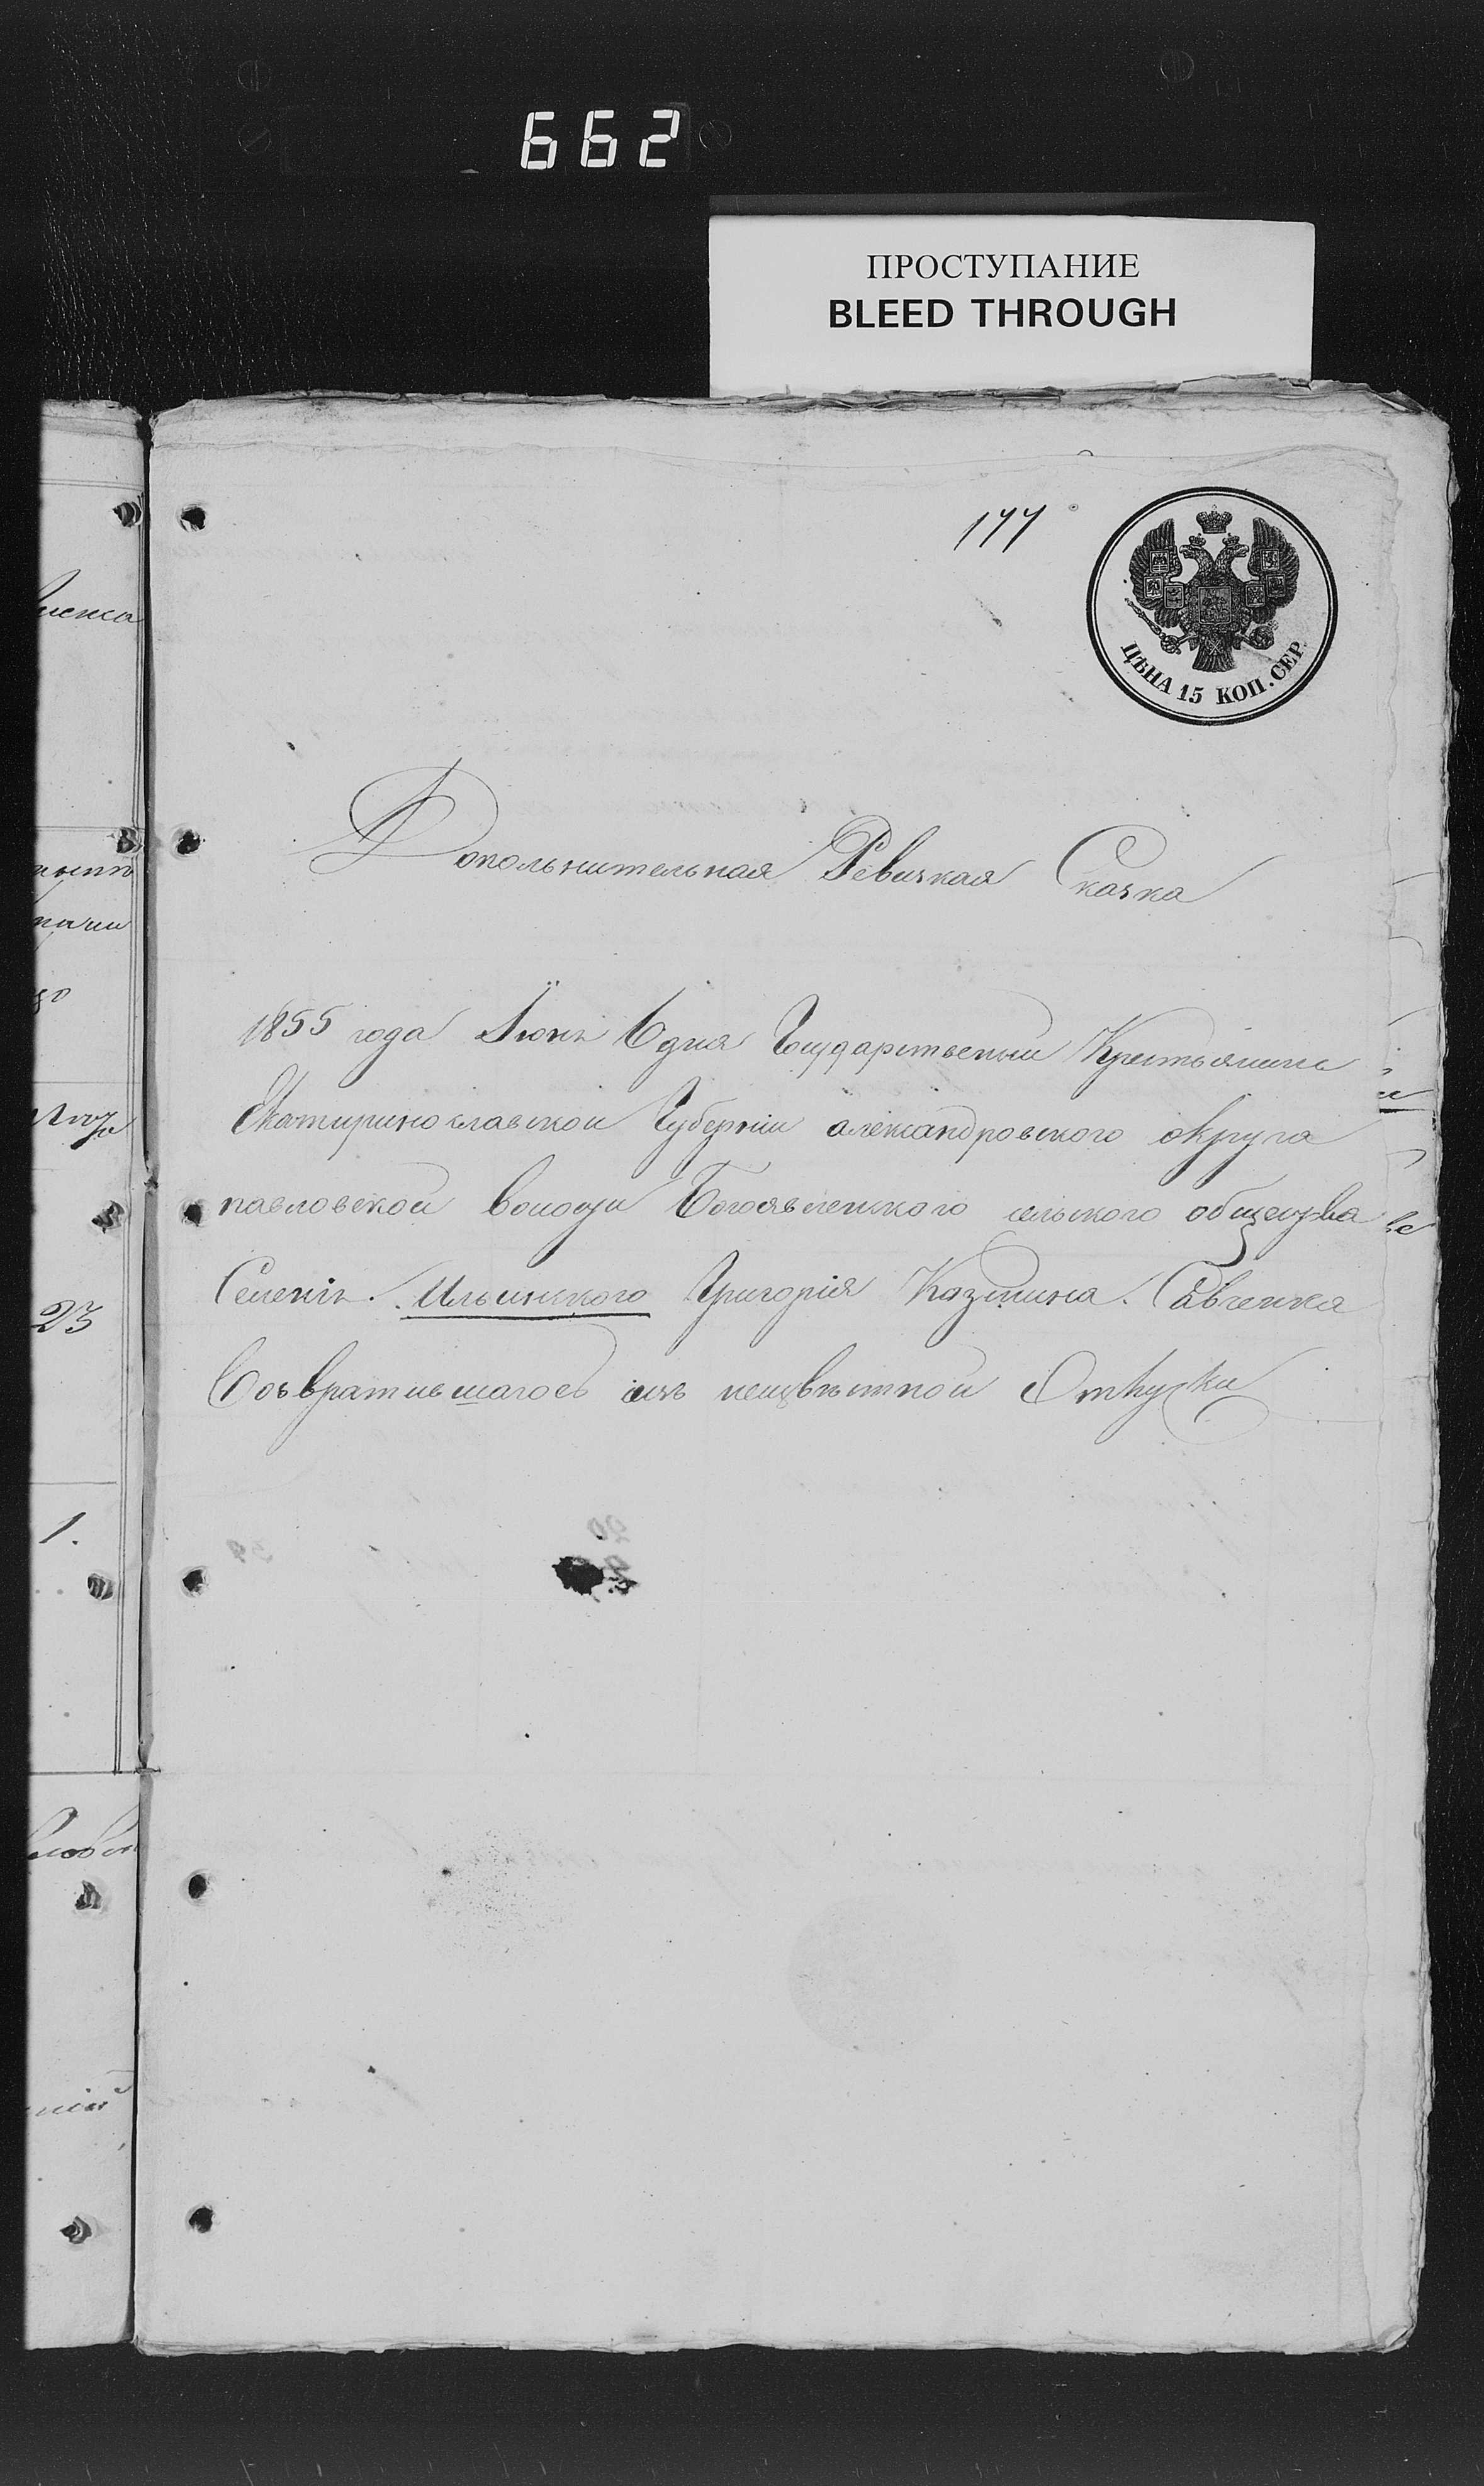 662
ПРОСТУПАНИЕ
BLEED THROUGH
177
ЦѢНА 15 КОП. СЕР.
Дополнительная Ревизкая Сказка
1855 года Июня 6 дня Государственыи Крестьянинъ
Екатиринославскои Губерніи александровского округа
павловской волощи Богоявленского сельского общезтва
Селенія. Ильинского Григорія Козмина. Савченка
Возвратившагось изъ неизвѣстной Отлучки
23
1.